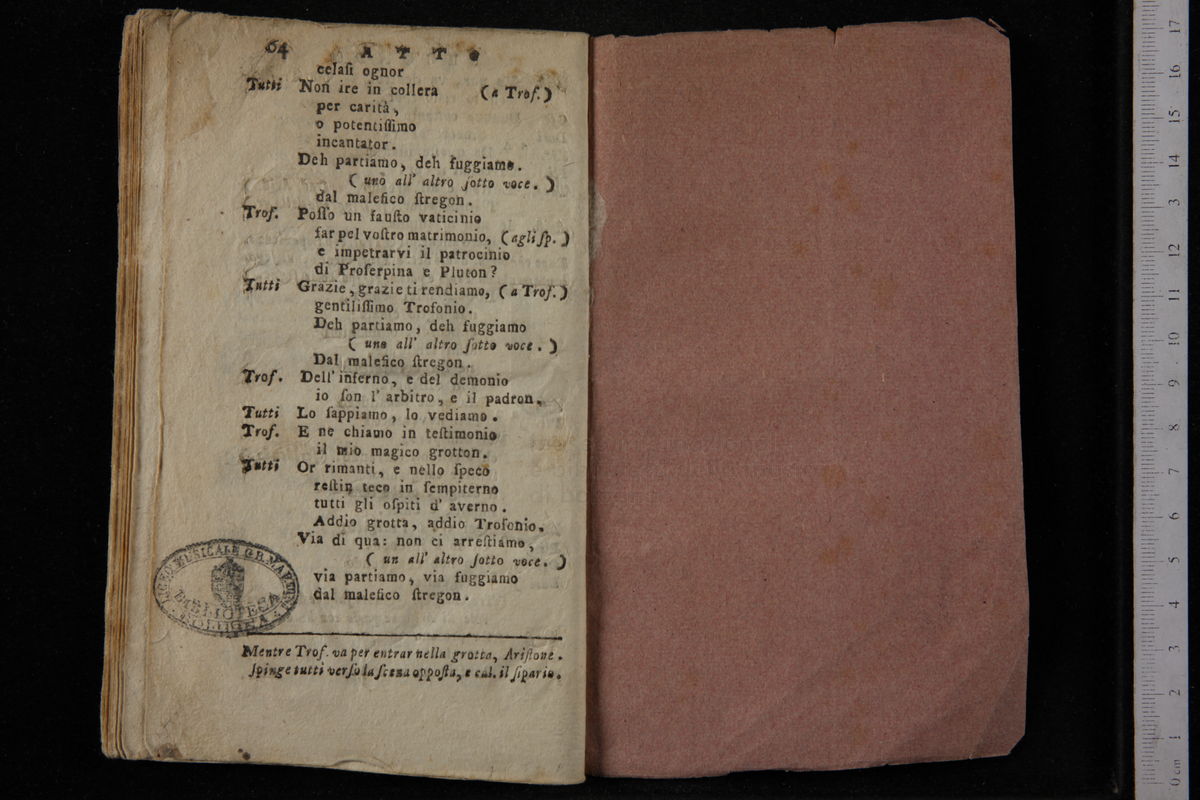 64 ATTO
celaſi ognor
Tutti Non ire in collera (a Trof.)
per carità,
o potentiſſimo
incantator.
Deh partiamo, deh fuggiamo.
(uno all' altro ſotto voce.)
dal malefico ſtregon.
Trof. Poſſo un fauſto vaticinio
far pel voſtro matrimonio, (agli ſp.)
e impetrarvi il patrocinio
di Proſerpina e Pluton?
Tutti Grazie, grazie ti rendiamo, (a Trof.)
gentiliſſimo Trofonio.
Deh partiamo, deh fuggiamo
(uno all' altro ſotto voce.)
Dal malefico ſtregon.
Trof. Dell' inferno, e del demonio
io ſon l' arbitro, e il padron.
Tutti Lo ſappiamo, lo vediamo.
Trof. E ne chiamo in teſtimonio
il mio magico grotton.
Tutti Or rimanti, e nello ſpeco
reſtin teco in ſempiterno
tutti gli oſpiti d' averno.
Addio grotta, addio Trofonio.
Via di qua: non ci arreſtiamo,
(un all' altro ſotto voce.)
via partiamo, via fuggiamo
dal malefico ſtregon.
LICEO MUSICALE G.B. MARTINI
BIBLIOTECA
BOLOGNA
Mentre Trof. va per entrar nella grotta, Ariſtone.
ſpinge tutti verſo la ſcena oppoſta, e cal. il ſipario.
0 cm 1 2 3 4 5 6 7 8 9 10 11 12 13 14 15 16 17